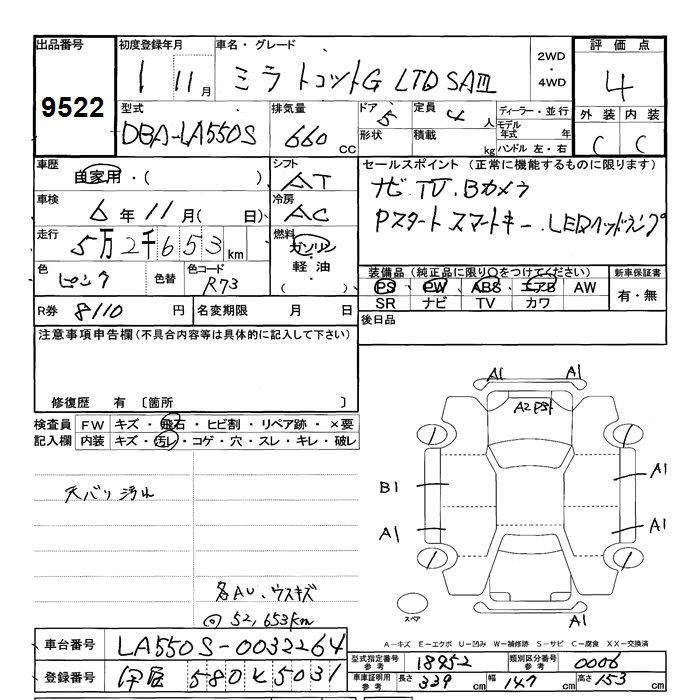 出品番号
9522
初度登録年月
1 11月
車名・グレード
ミラトコットG LTD SAⅢ
2WD
・
4WD
評価点
4
型式
DBA-LA550S
排気量
660 CC
ドア 5
形状
定員 4 人
積載 kg
ディーラー・並行
モデル年式 年
ハンドル 左・右
外装 内装
C C
車歴
自家用・( )
シフト
AT
車検
6年11月( 日)
冷房
AC
走行
5万2千653km
燃料
ガソリン
・
軽油
( )
色
ピンク
色替
色コード
R73
R券 8110 円
名変期限 月 日
セールスポイント(正常に機能するものに限ります)
ナビ.TV.Bカメラ
Pスタート スマートキー.LEDヘッドランプ
装備品(純正品に限り○をつけてください)
新車保証書
PS PW ABS エアB AW
SR ナビ TV カワ
有・無
後日品
注意事項申告欄(不具合内容等は具体的に記入して下さい)
修復歴 有 〔箇所 〕
検査員記入欄
FW キズ・飛石・ヒビ割・リペア跡・×要
内装 キズ・汚レ・コゲ・穴・スレ・キレ・破レ
天バリ汚れ
各AU、ウスキズ
@ 52,653km
A1 A1
A2
B1 A1
A1 A1
A1
スペア
A-キズ E-エクボ U-凹み W-補修跡 S-サビ C-腐食 XX-交換済
車台番号
LA550S-0032264
登録番号
580 5031
型式指定番号参考
18952
類別区分番号参考
0006
車庫証明用参考
長さ 339 cm
幅 147 cm
高さ 153 cm